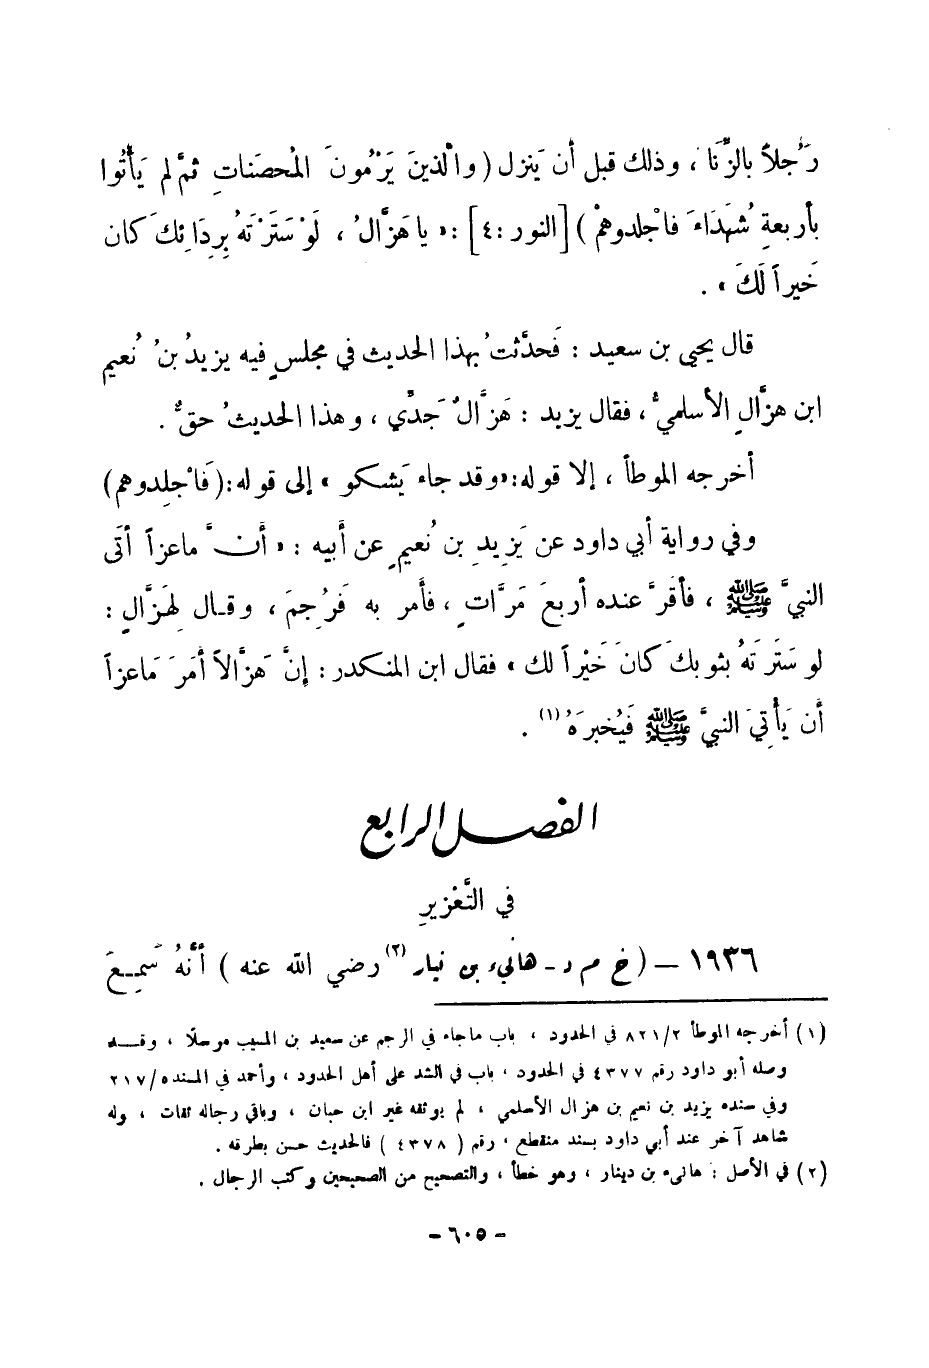 رَجُلاً بالزِّنَا ، وذلك قبل أن يَنزل ( والَّذينَ يَرْمُونَ المُحصَنَاتِ ثمَّ لم يَأتُوا
بأربعةِ شُهَدَاءَ فَاجْلدوهمْ ) [ النور : ٤ ] : « يا هَزَّالُ ، لَوْ سَتَرْتَهُ بِرِدَائِكَ كان
خَيراً لَكَ » .
قال يحيى بن سعيد : فَحدَّثتُ بهذا الحديث في مجلسٍ فيه يزيدُ بنُ نُعيم
ابن هزَّالٍ الأسلميُّ ، فقال يزيد : هَزَّالٌ جَدِّي ، وهذا الحديثُ حقٌّ .
أخرجه الموطأ ، إلا قوله : « وقد جاء يَشكو » إلى قوله : ( فَاجْلِدوهم )
وفي رواية أبي داود عن يَزِيدِ بن نُعيمٍ عن أَبيه : « أَنَّ ماعزاً أتَى
النبيَّ ﷺ ، فأقرَّ عنده أربعَ مَرَّاتٍ ، فأَمر به فَرُجِمَ ، وقال لِهَزَّالٍ :
لو سَتَرتَهُ بثوبكَ كانَ خَيْراً لك » فقال ابن المنكدر : إنَّ هَزَّالاً أَمَرَ مَاعزاً
أَن يَأْتِيَ النبيَّ ﷺ فَيُخبرَهُ (١) .
الفصل الرابع
في التَّعْزيرِ
١٩٣٦ – ( خ م د - هانيء بن نيار (٢) رضي الله عنه ) أَنَّهُ سَمِعَ
(١) أخرجه الموطأ ٨٢١/٢ في الحدود ، باب ماجاء في الرجم عن سعيد بن المسيب مرسلًا ، وقد
وصله أبو داود رقم ٤٣٧٧ في الحدود ، باب في الستر على أهل الحدود ، وأحمد في المسند ٢١٧/٥
وفي سنده يزيد بن نعيم بن هزال الأسلمي ، لم يوثقه غير ابن حبان ، وباقي رجاله ثقات ، وله
شاهد آخر عند أبي داود بسند منقطع ، رقم ( ٤٣٧٨ ) فالحديث حسن بطرقه .
(٢) في الأصل : هانيء بن دينار ، وهو خطأ ، والتصحيح من الصحيحين وكتب الرجال .
- ٦٠٥ -